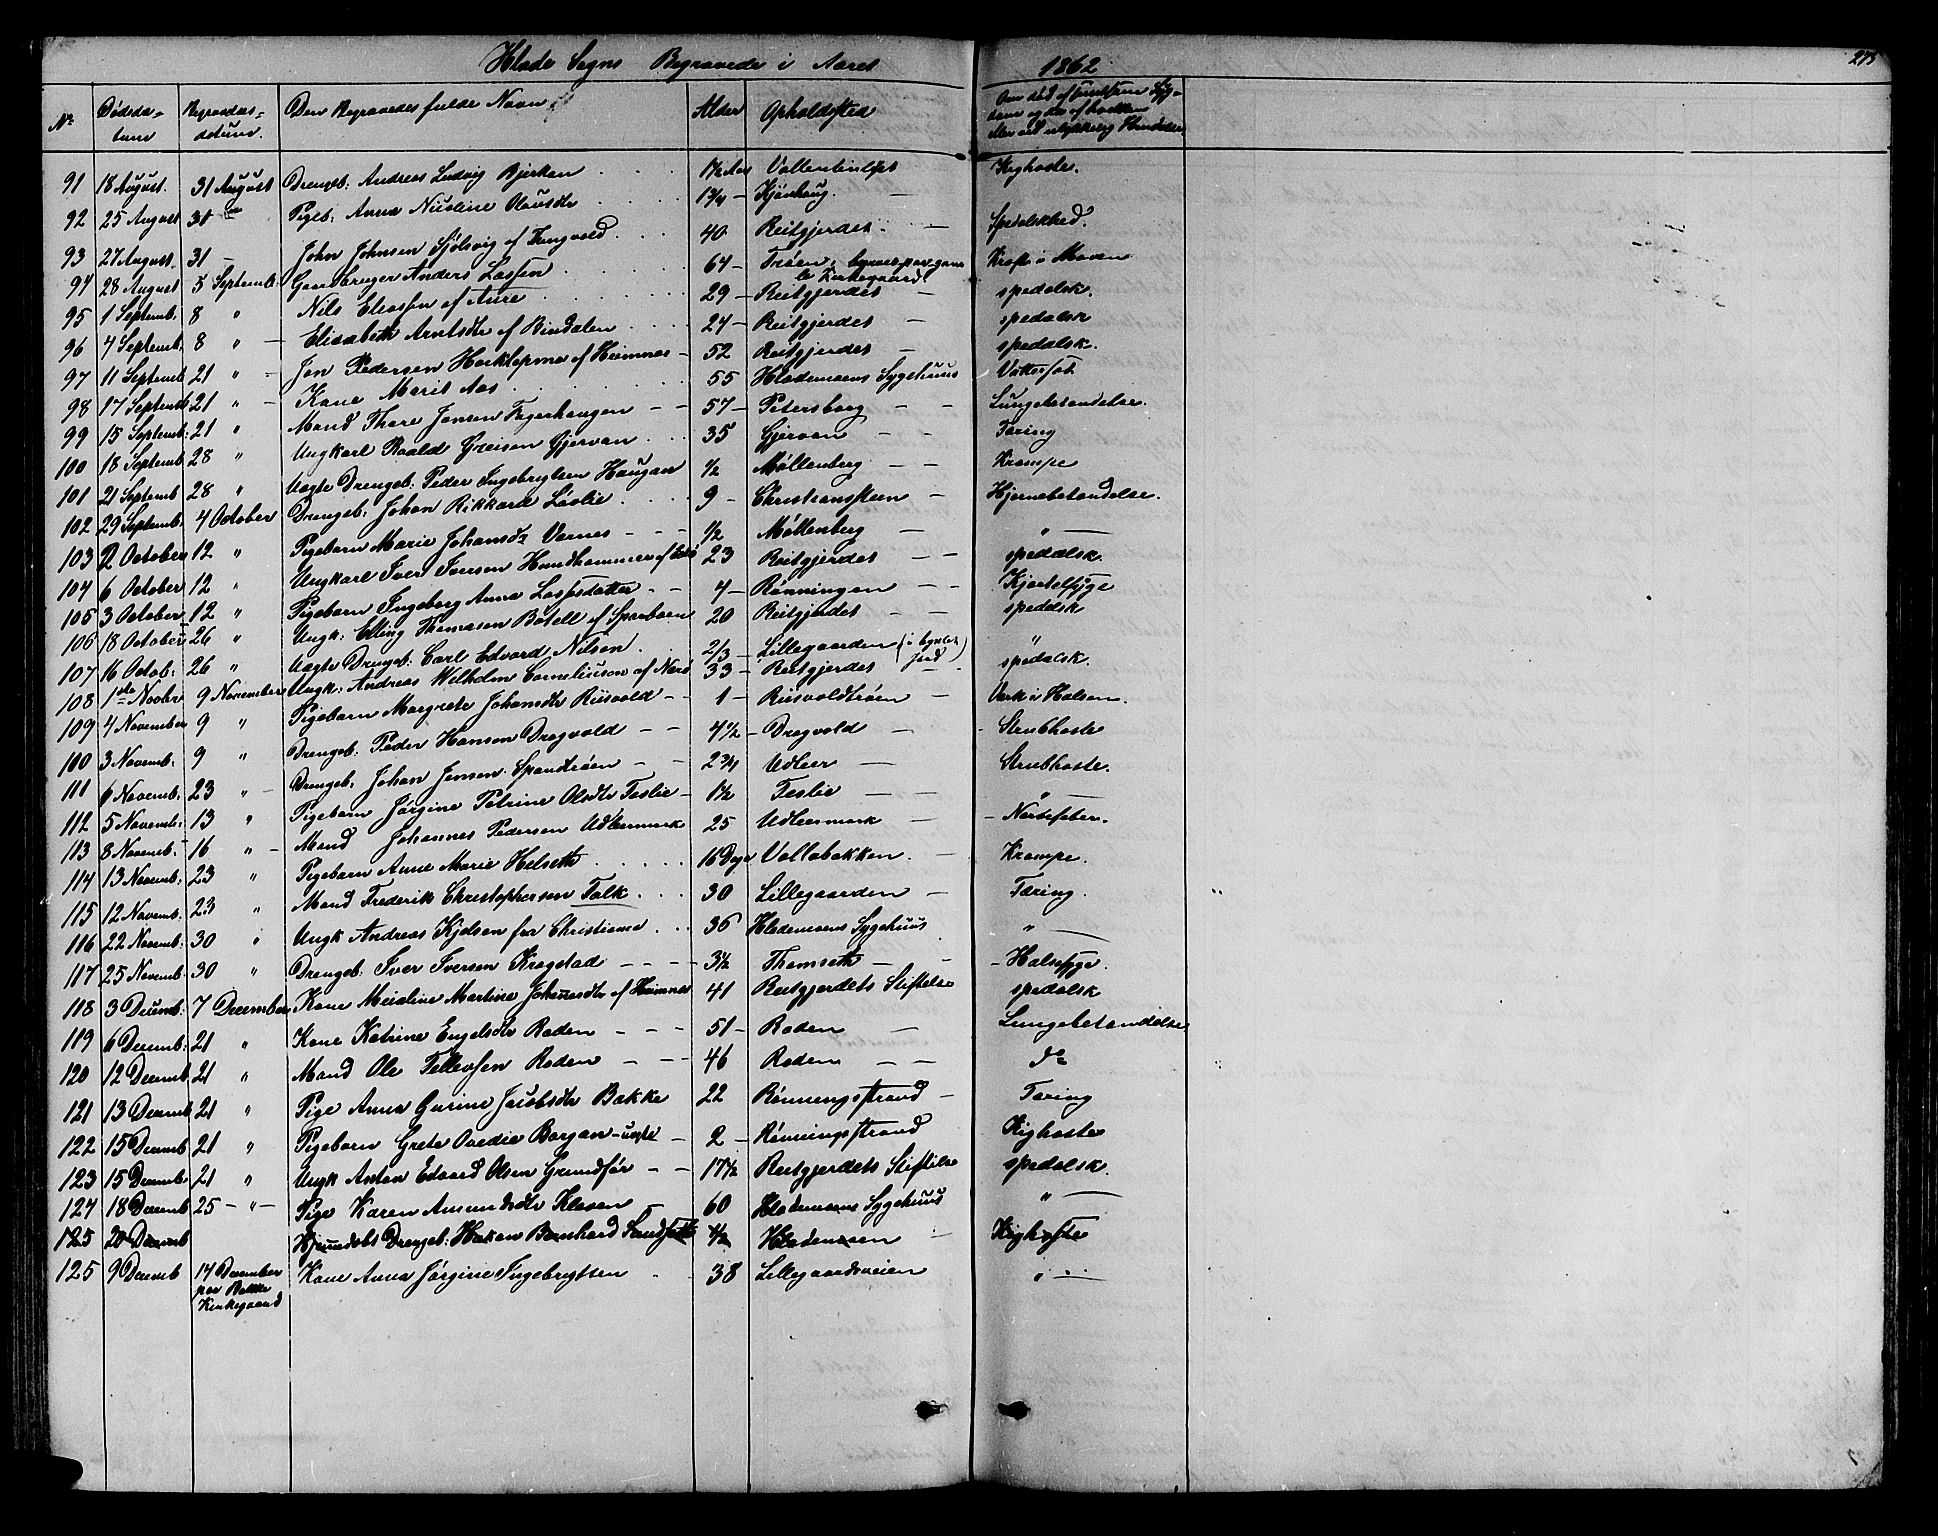 Hlade Sogns Begravede i Aaret 1862 275
No Dødsda- Begravelses- Den Begravedes fulde Navn Alder Opholdssted Om død af smitsom Syg-
tum datum. dom og da af hvilken
eller ved ulykkelig Hændelse
91 18 August. 31 August Drengeb: Andreas Ludvig Bjerkan 1½ Aar Vollenbuløst Kighoste.
92 25 August 31 Pigeb: Anna Nicoline Olausdtr 1¾ Kjønhoug
93 27 August 31 — John Johnsen Sjølsvig af Tingvold 40 Reitgjerdet — Spedalskhed.
94 28 August 5 Septemb: Gaardbruger Anders Lassen 64 — Trøen; begr. paa gam- le Kirkegaard Kræft i Maven
95 1 Septemb. 8 " Nils Eliassen af Aure 29 — Reitgjerdet — spedalsk.
96 4 Septemb: 8 " — Elisabeth Arntsdtr af Bindalen 24 — Reitgjerdet — spedalsk
97 11 Septemb 21 " — Jon Pedersen Horklopmo af Hemnes — 52 Reitgjerdet — spedalsk.
98 17 Septemb 21 " — Kone Marit Aas 55 Hlademoens Sygehuus Vattersot
99 15 Septemb: 21 " Mand Thore Jensen Fagerhaugen — — 57 — Petersborg — — Lungebetændelse.
100 18 Septemb 28 " Ungkarl Roald Greisen Gjervan 35 Gjervan — — Tæring
101 21 Septemb 28 " Uægte Drengeb: Peder Ingebrigtsen Haugan ½ Møllenberg — — Krampe
102 29 Septemb. 4 October Drengeb: Johan Rikkard Løvlie 9 — Christiansteen — Hjernebetændelse.
103 2 October 12 " Pigebarn Marie Johansdtr Værnes — — ½ Møllenberg — " —
104 6 October 12 " Ungkarl Iver Iversen Hundhammer af 23 Reitgjerdet — — spedalsk.
105 3 October 12 " Pigebarn Ingeborg Anna Larsdatter — — 4 — Rønningen — — Kjertelsyge
106 18 October 26 " Ungk: Elling Thomasen Bøtell af Sparboen 20 Reitgjerdet — — spedalsk
107 16 Octob: 26 " Uægte Drengeb: Carl Edvard Nilsen 2/3 — Lillegaarden "
108 1ste Novbr 9 November Ungk: Andreas Wilhelm Corneliusen af Nærø 33 — Reitgjerdet — spedalsk.
109 4 November 9 " Pigebarn Margrete Johansdtr Riisvold — — 1 — Riisvoldtrøen — Værk i Halsen.
110 3 Novemb: 9 " Drengeb. Peder Hansen Dragvold — — 4½ — Dragvold — Strubhoste
111 6 Novemb: 23 " — Drengeb: Johan Jensen Spandtrøen — — 2¾ Udleer — Strubhoste.
112 5 Novemb: 13 " Pigebarn Jørgine Petrine Olsdtr Teslie — 1½ Teslie — — " —
113 8 Novemb: 16 " — Mand Johannes Pedersen Udleermark 25 Udleermark — — Nervefeber.
114 13 Novemb: 23 " Pigebarn Anne Marie Helseth 16 Dage Vollabakken. — Krampe.
115 12 Novemb. 23 " Mand Frederik Christophersen Falk 30 Lillegaarden — Tæring.
116 22 Novemb: 30 " Ungk Andreas Kjelsen fra Christiania 36 Hlademoens Sygehuus " —
117 25 Novemb. 30 " Drengeb: Iver Iversen Kragstad — — — — 3½ Thomseth — — Halssyge.
118 3 Decemb: 7 December Kone Meialine Martine Johannesdtr af Hemnes 41 Reitgjerdets Stiftelse spedalsk
119 6 Decemb: 21 " Kone Katrine Engelsdtr Roden — — — 51 — Roden — Lungebetændelse
120 12 Decemb 21 " Mand Ole Tellevsen Roden — — — 46 Roden — do
121 13 Decemb 21 " Pige Anna Gurine Jacobsdtr Bakke 22 Rønningstrand — Tæring
122 15 Decemb 21 " Pigebarn Grete Ovedie Borgan — uægte — 2 — Rønningstrand Kighoste
123 15 Decemb: 21 " Ungk Anton Edvard Olsen Grundfør — — 17½ Reitgjerdets Stiftelse spedalsk.
124 18 Decemb 25 — " — Pige Karen Amundsdtr Klesen — 60 Hlademoens Sygehuus " —
125 20 Decemb Hjemdøbt Drengeb: Haken Bernhard Sandseth ½ Hlademoen — Kighoste
125 9 Decemb 14 December Kone Anna Jørgine Ingebrigtsen 38 Lillegaardsveien " —
paa Bakke
Kirkegaard